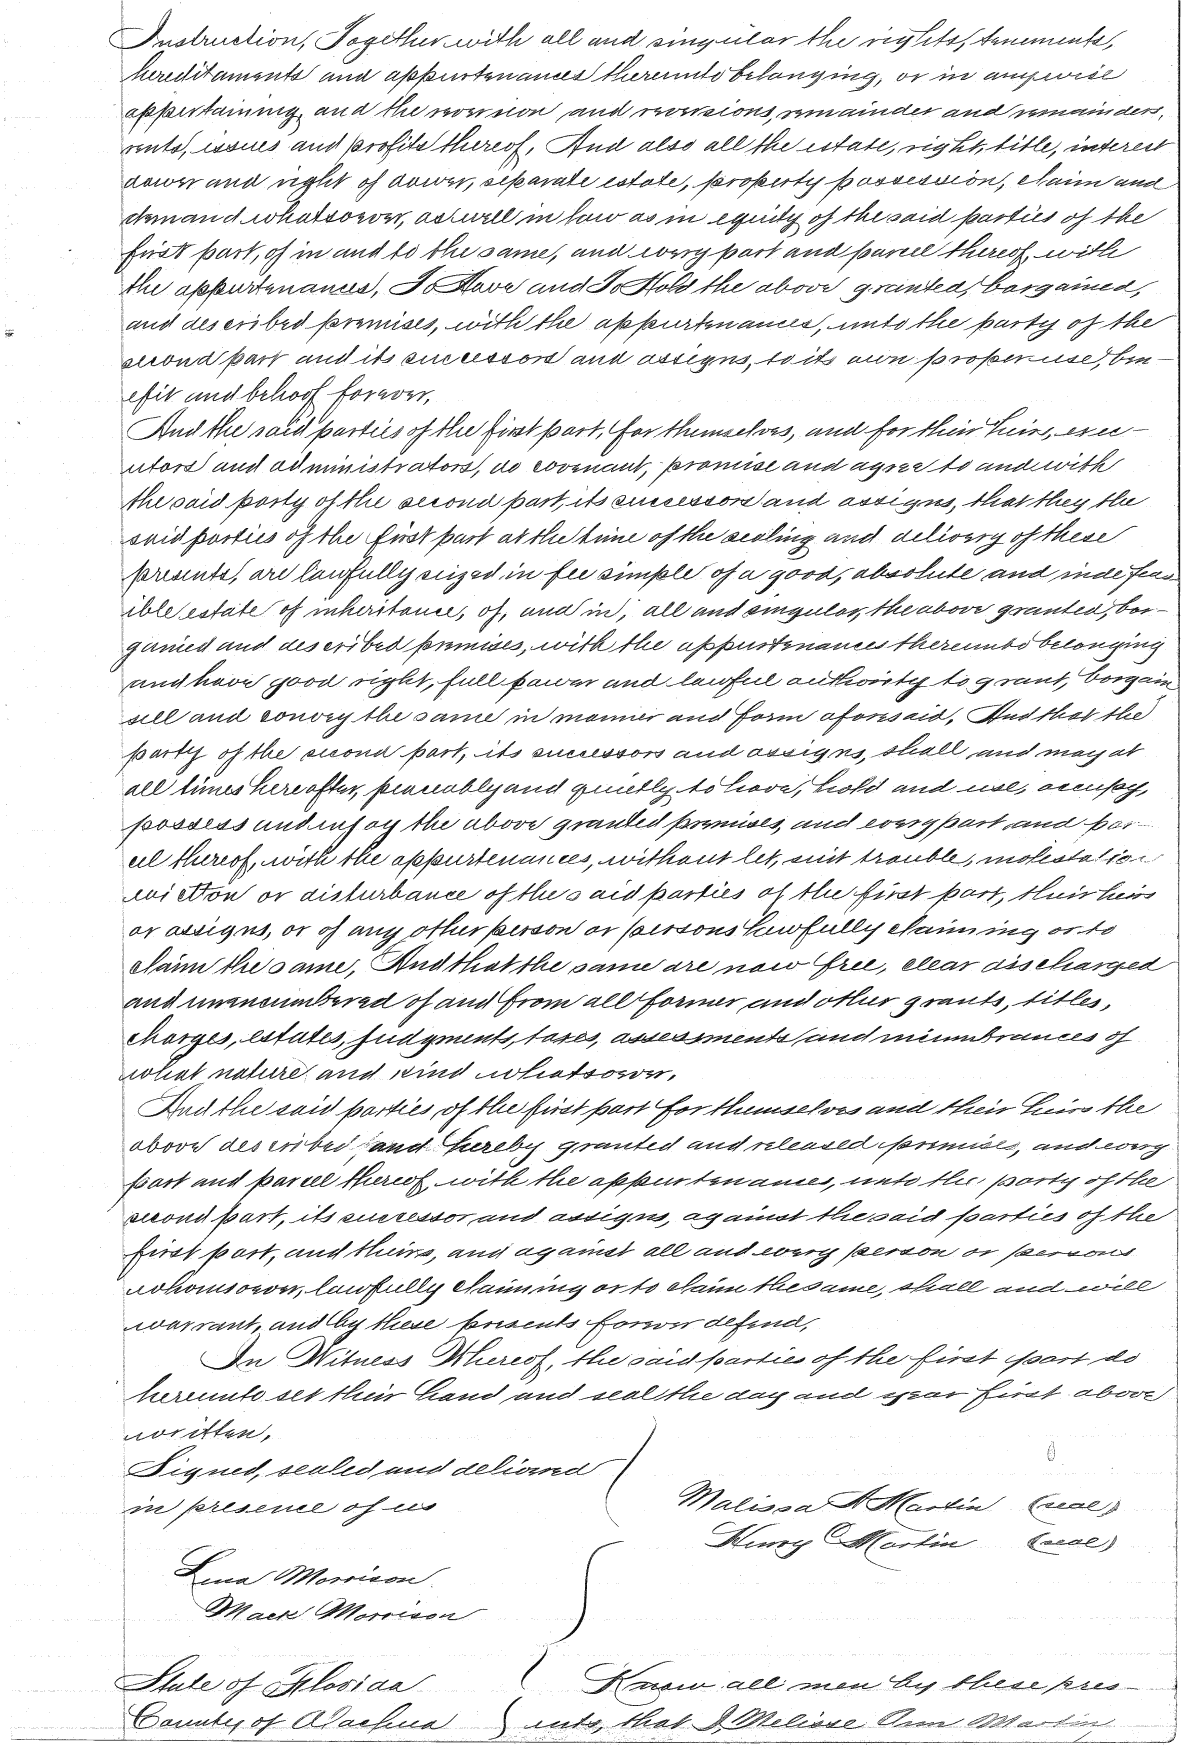 Instruction, Together with all and singular the rights, tenements,
hereditaments and appurtenances thereunto belonging, or in anywise
appertaining, and the reversion and reversions, remainder and remainders,
rents, issues and profits thereof, And also all the estate, right, title, interest
dower and right of dower, separate estate, property possession, claim and
demand whatsoever, as well in law as in equity of the said parties of the
first part, of in and to the same, and every part and parcel thereof, with
the appurtenances, To Have and To Hold the above granted, bargained,
and described premises, with the appurtenances, unto the party of the
second part and its successors and assigns, to its own proper use, ben-
efit and behoof forever,
And the said parties of the first part, for themselves, and for their heirs, exec-
utors and administrators, do covenant, promise and agree to and with
the said party of the second part, its successors and assigns, that they the
said parties of the first part at the time of the sealing and delivery of these
presents, are lawfully seized in fee simple of a good, absolute and indefeas
ible estate of inheritance, of, and in, all and singular, the above granted, bar-
gained and described premises, with the appurtenances thereunto belonging
and have good right, full power and lawful authority to grant, bargain
sell and convey the same in manner and form aforesaid, And that the
party of the second part, its successors and assigns, shall and may at
all times hereafter, peaceably and quietly to have, hold and use, occupy,
possess and enjoy the above granted premises, and every part and par-
cel thereof, with the appurtenances, without let, suit trouble, molestation
eviction or disturbance of the said parties of the first part, their heirs
or assigns, or of any other person or persons lawfully claiming or to
claim the same, And that the same are now free, clear discharged
and unencumbered of and from all former and other grants, titles,
charges, estates, judgments, taxes, assessments and incumbrances of
what nature and kind whatsoever,
And the said parties, of the first part for themselves and their heirs the
above described and hereby granted and released premises, and every
part and parcel thereof, with the appurtenances, unto the party of the
second part, its successor and assigns, against the said parties of the
first part, and theirs, and against all and every person or persons
whomsoever, lawfully claiming or to claim the same, shall and will
warrant, and by these presents forever defend,
In Witness Whereof, the said parties of the first part do
hereunto set their hand and seal the day and year first above
written,
Signed, sealed and delivered
in presence of us
Malissa A Martin (seal)
Henry C Martin (seal)
Lena Morrison
Mack Morrison
State of Florida Know all men by these pres-
County of Alachua ents, that I, Melisse Ann Martin